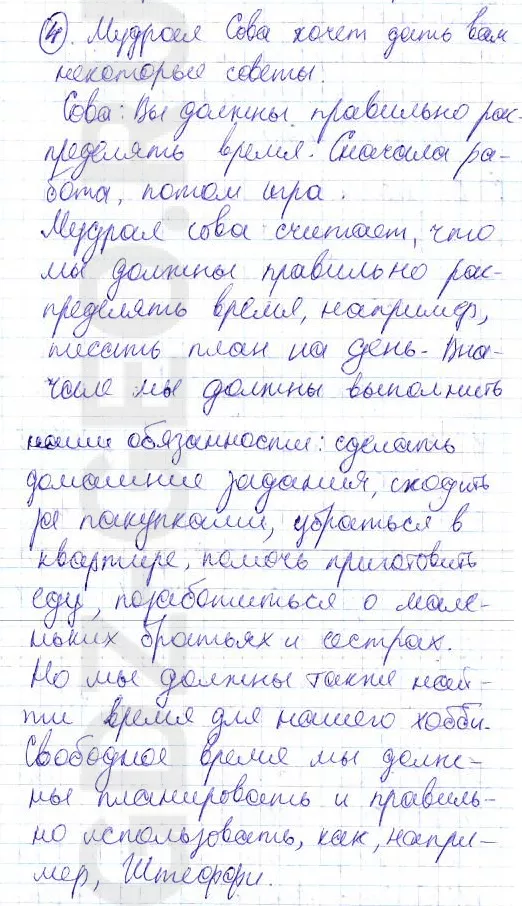 4. Мудрая Сова хочет дать вам
некоторые советы.
Сова: Вы должны правильно рас-
пределять время. Сначала ра-
бота, потом игра.
Мудрая сова считает, что
мы должны правильно рас-
пределять время, например,
писать план на день. Вна-
чале мы должны выполнить
наши обязанности: сделать
домашние задания, сходить
за покупками, убраться в
квартире, помочь приготовить
еду, позаботиться о мале-
ньких братьях и сестрах.
Но мы должны также най-
ти время для нашего хобби.
Свободное время мы долж-
ны планировать и правиль-
но использовать, как, напри-
мер, Штеффи.
GDZ-GEO.RU